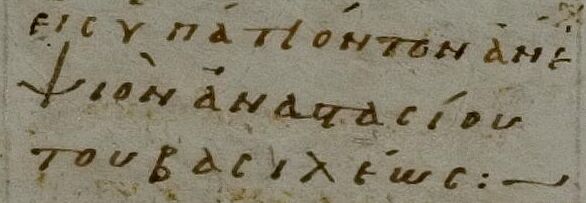 εἰς ὑπάτιον τὸν ἀνε
ψιὸν ἀναστασίου
τοῦ βασιλέως:~